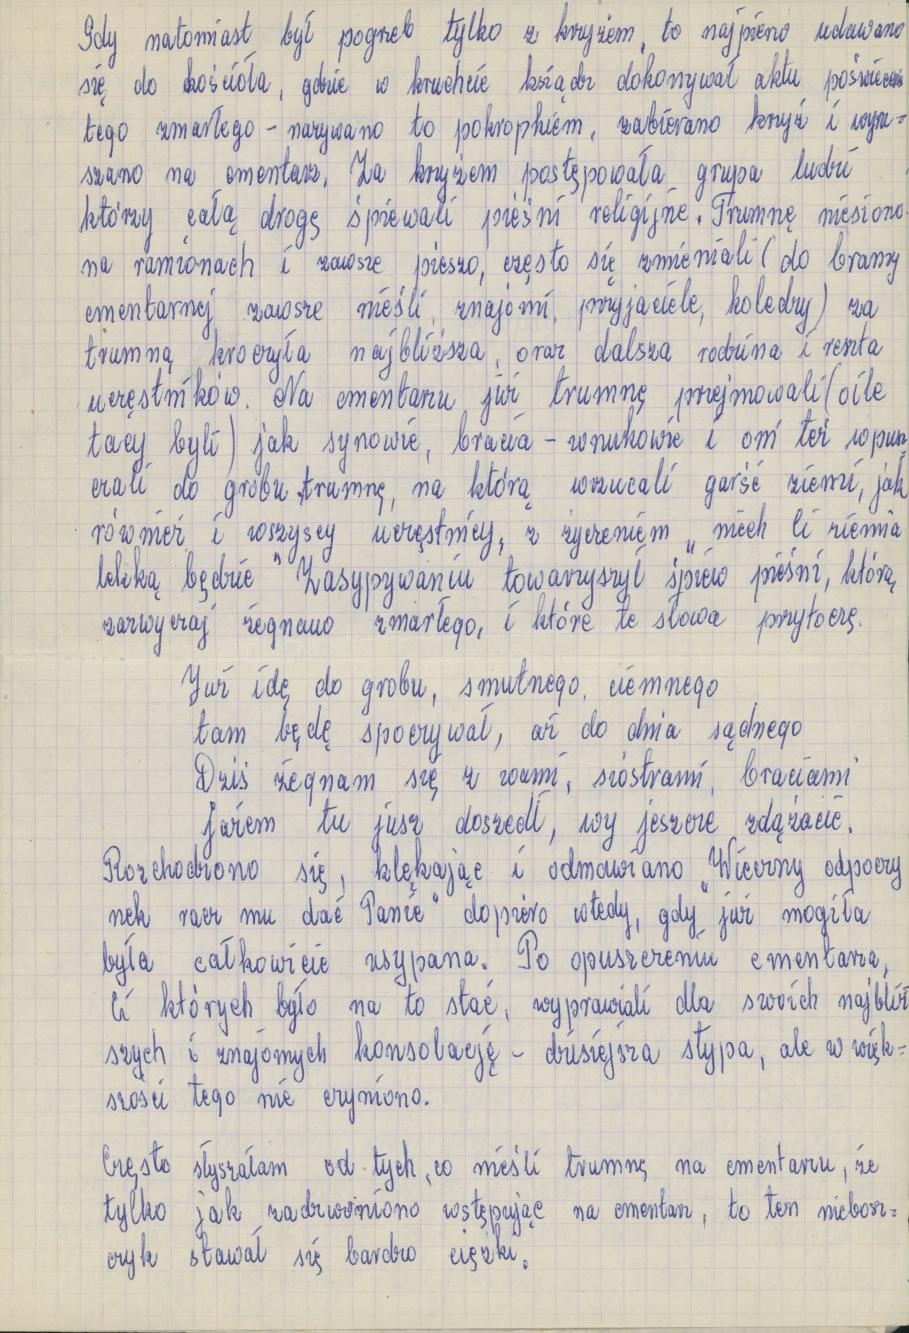 Gdy natomiast był pogrzeb tylko z krzyżem, to najpierw udawano
się do kościoła, gdzie w kruchcie ksiądz dokonywał aktu poświęcenia
tego zmarłego - nazywano to pokropkiem, zabierano krzyż i wyru=
szano na cmentarz. Za krzyżem postępowała grupa ludzi
którzy całą drogę śpiewali pieśni religijne. Trumnę niesiono
na ramionach i zawsze pieszo, często się zmieniali (do bramy
cmentarnej zawsze nieśli, znajomi, przyjaciele, koledzy) za
trumną kroczyła najbliższa, oraz dalsza rodzina i reszta
uczęstników. Na cmentarzu już trumnę przejmowali (oile
tacy byli) jak synowie, bracia - wnukowie i oni też wpusz
czali do grobu trumnę, na którą wrzucali garść ziemi, jak
również i wszyscy uczęstnicy, z życzeniem „niech Ci ziemia
lekką będzie" Zasypywaniu towarzyszył śpiew pieśni, którą
zazwyczaj żegnano zmarłego, i które te słowa przytoczę.
Już idę do grobu, smutnego, ciemnego
tam będę spoczywał, aż do dnia sądnego
Dziś żegnam się z wami, sióstrami, braciami
jażem tu jusz doszedł, wy jeszcze zdążacie.
Rozchodzono się, klękając i odmawiano „Wieczny odpoczy
nek racz mu dać Panie" dopiero wtedy, gdy już mogiła
była całkowicie usypana. Po opuszczeniu cmentarza,
Ci których było na to stać, wyprawiali dla swoich najbliż
szych i znajomych konsolację - dzisiejsza stypa, ale w więk=
szości tego nie czyniono.
Często słyszałam od tych, co nieśli trumnę na cmentarzu, że
tylko jak zadzwoniono wstępując na cmentarz, to ten niebosz=
czyk stawał się bardzo ciężki.